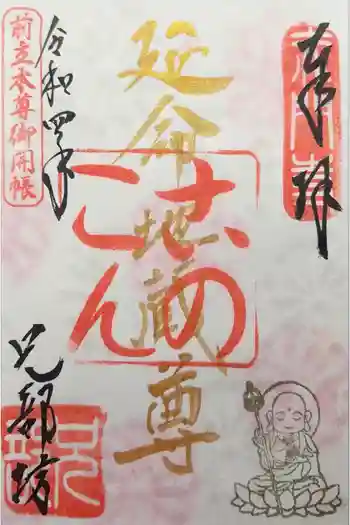 奉拝
延命地蔵尊
の
こん
令和四年
前立本尊御開帳
兄部坊